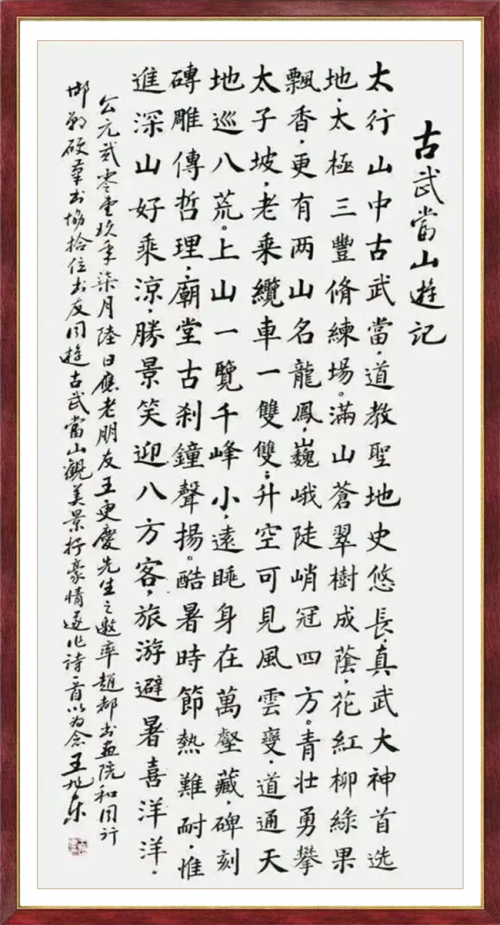 古武當山遊記
太行山中古武當，道教聖地史悠長，真武大神首選
地，太極三豐脩練場。滿山蒼翠樹成蔭，花紅柳綠果
飄香，更有两山名龍鳳，巍峨陡峭冠四方。青壯勇攀
太子坡，老乘纜車一雙雙；升空可見風雲變，道通天
地巡八荒。上山一覽千峰小，遠睡身在萬壑藏，碑刻
磚雕傳哲理，廟堂古刹鐘聲揚。酷暑時節熱難耐，惟
進深山好乘涼，勝景笑迎八方客，旅游避暑喜洋洋。
公元貳零壹玖年柒月陸日應老朋友王更慶先生之邀率趙都书画院和同行
邯郸硬筆书協拾位书友同遊古武當山觀美景抒豪情遂作詩一首以为念王